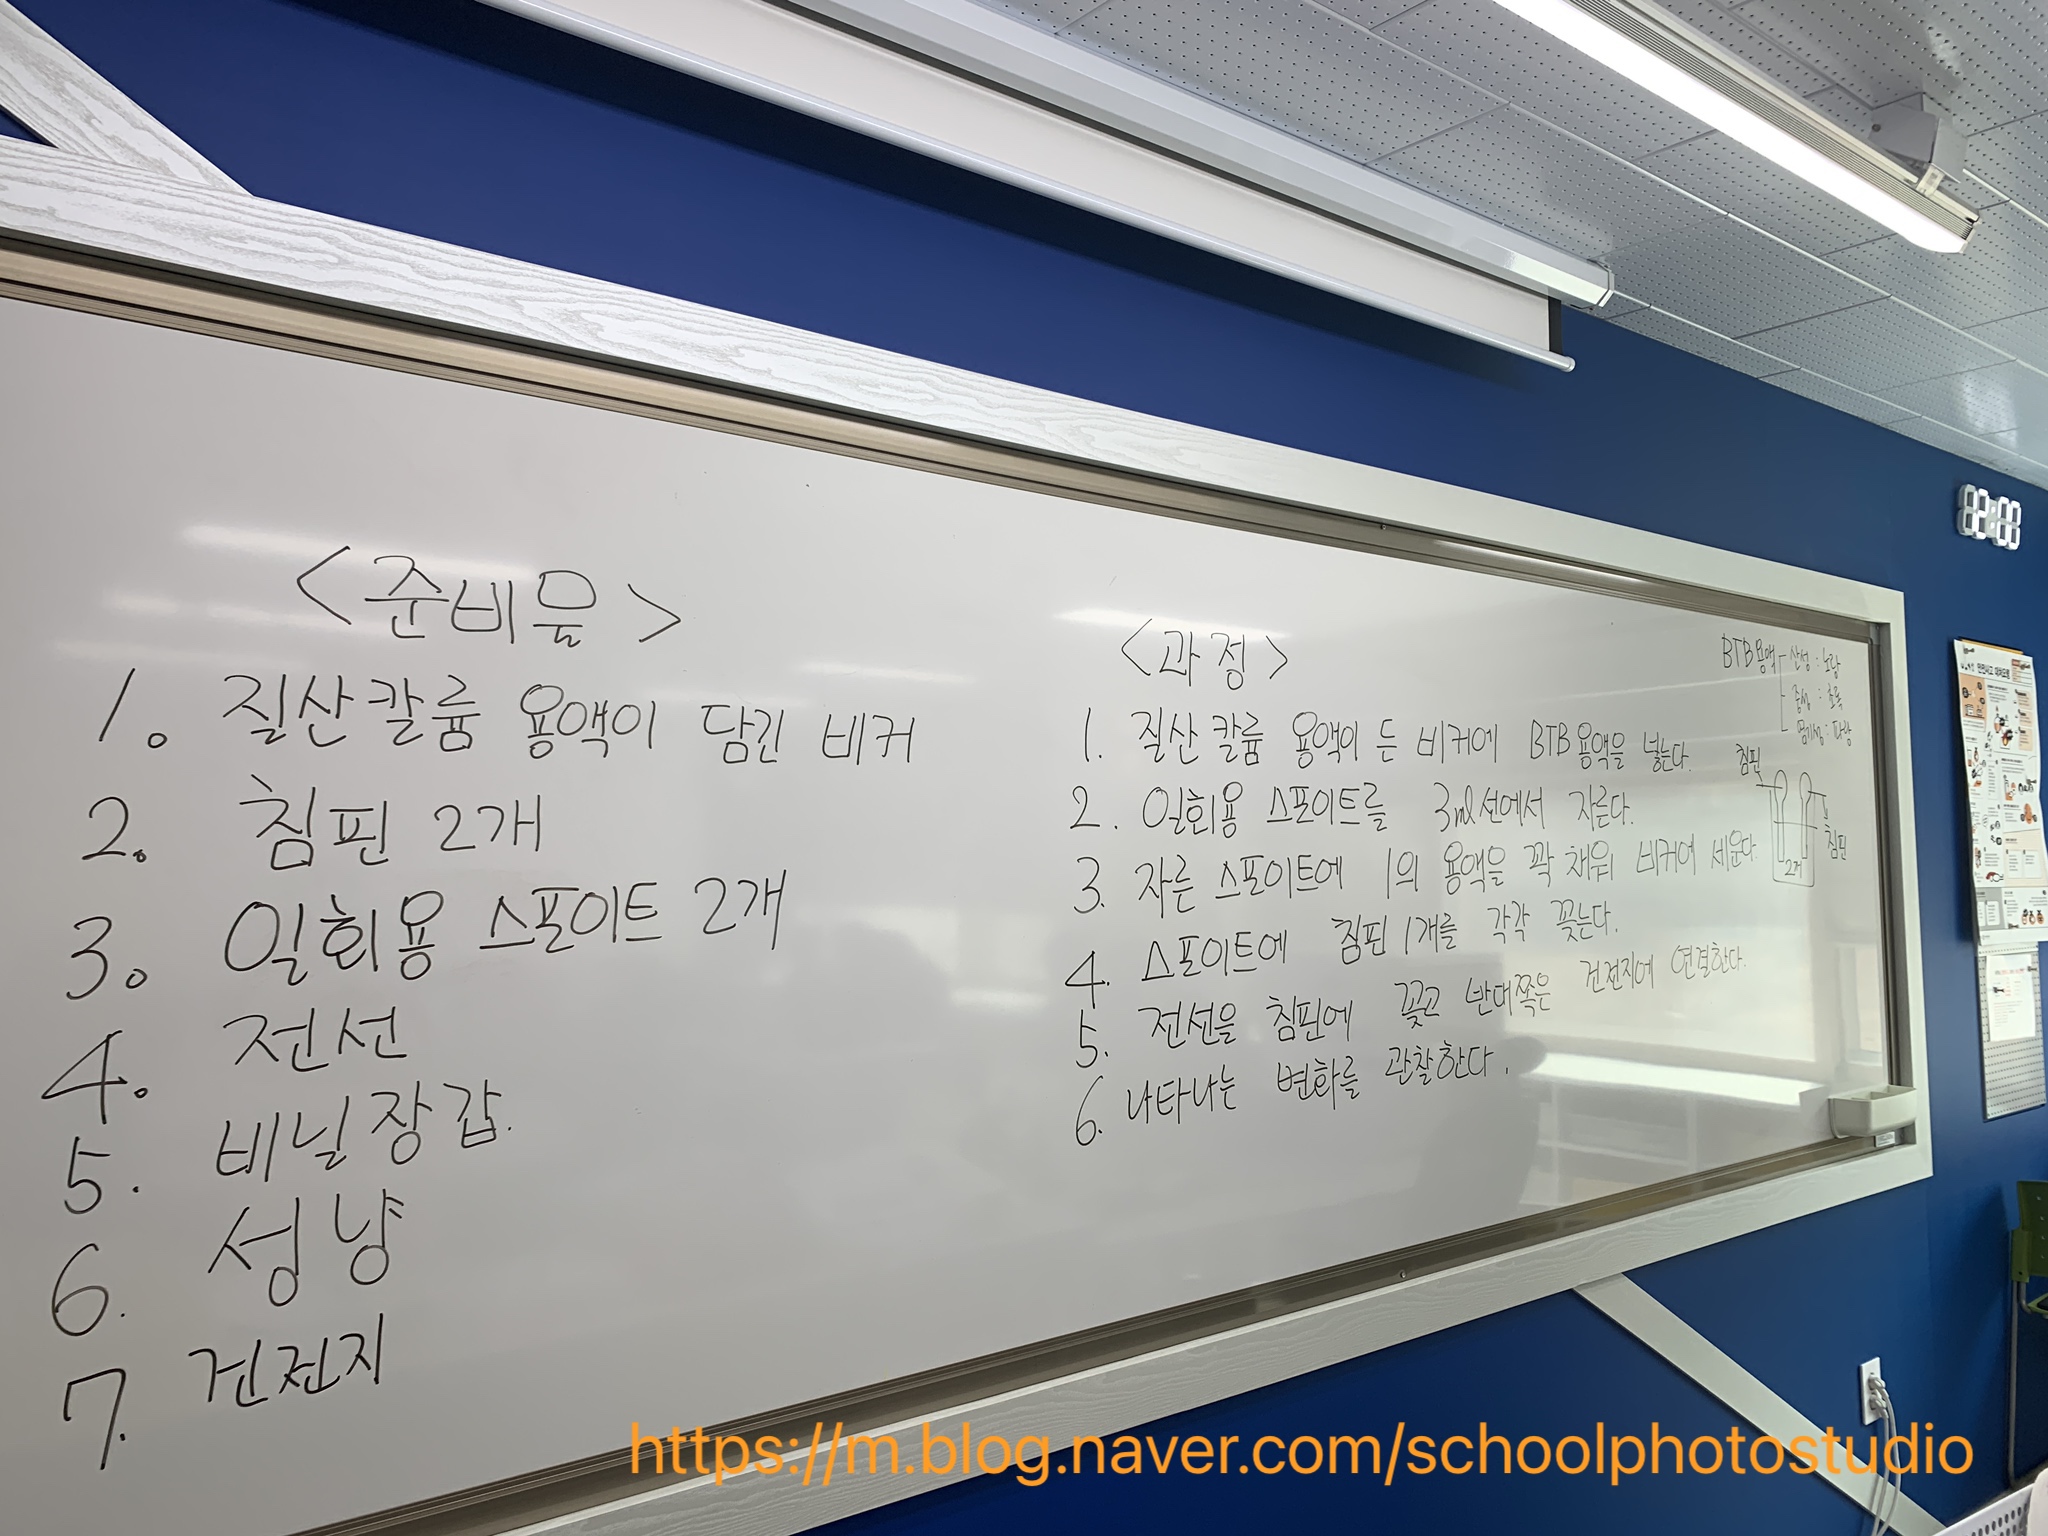 <준비물>
1. 질산칼륨 용액이 담긴 비커
2. 침핀 2개
3. 일회용 스포이트 2개
4. 전선
5. 비닐장갑.
6. 성냥
7. 건전지
<과정>
1. 질산칼륨 용액이 든 비커에 BTB용액을 넣는다.
2. 일회용 스포이트를 3ml선에서 자른다.
3. 자른 스포이트에 1의 용액을 꽉 채워 비커에 세운다.
4. 스포이트에 침핀 1개를 각각 꽂는다.
5. 전선을 침핀에 꽂고 반대쪽은 건전지에 연결한다.
6. 나타나는 변화를 관찰한다.
BTB용액 산성 : 노랑
중성 : 초록
염기성 : 파랑
침핀
침핀
02:00
https://m.blog.naver.com/schoolphotostudio